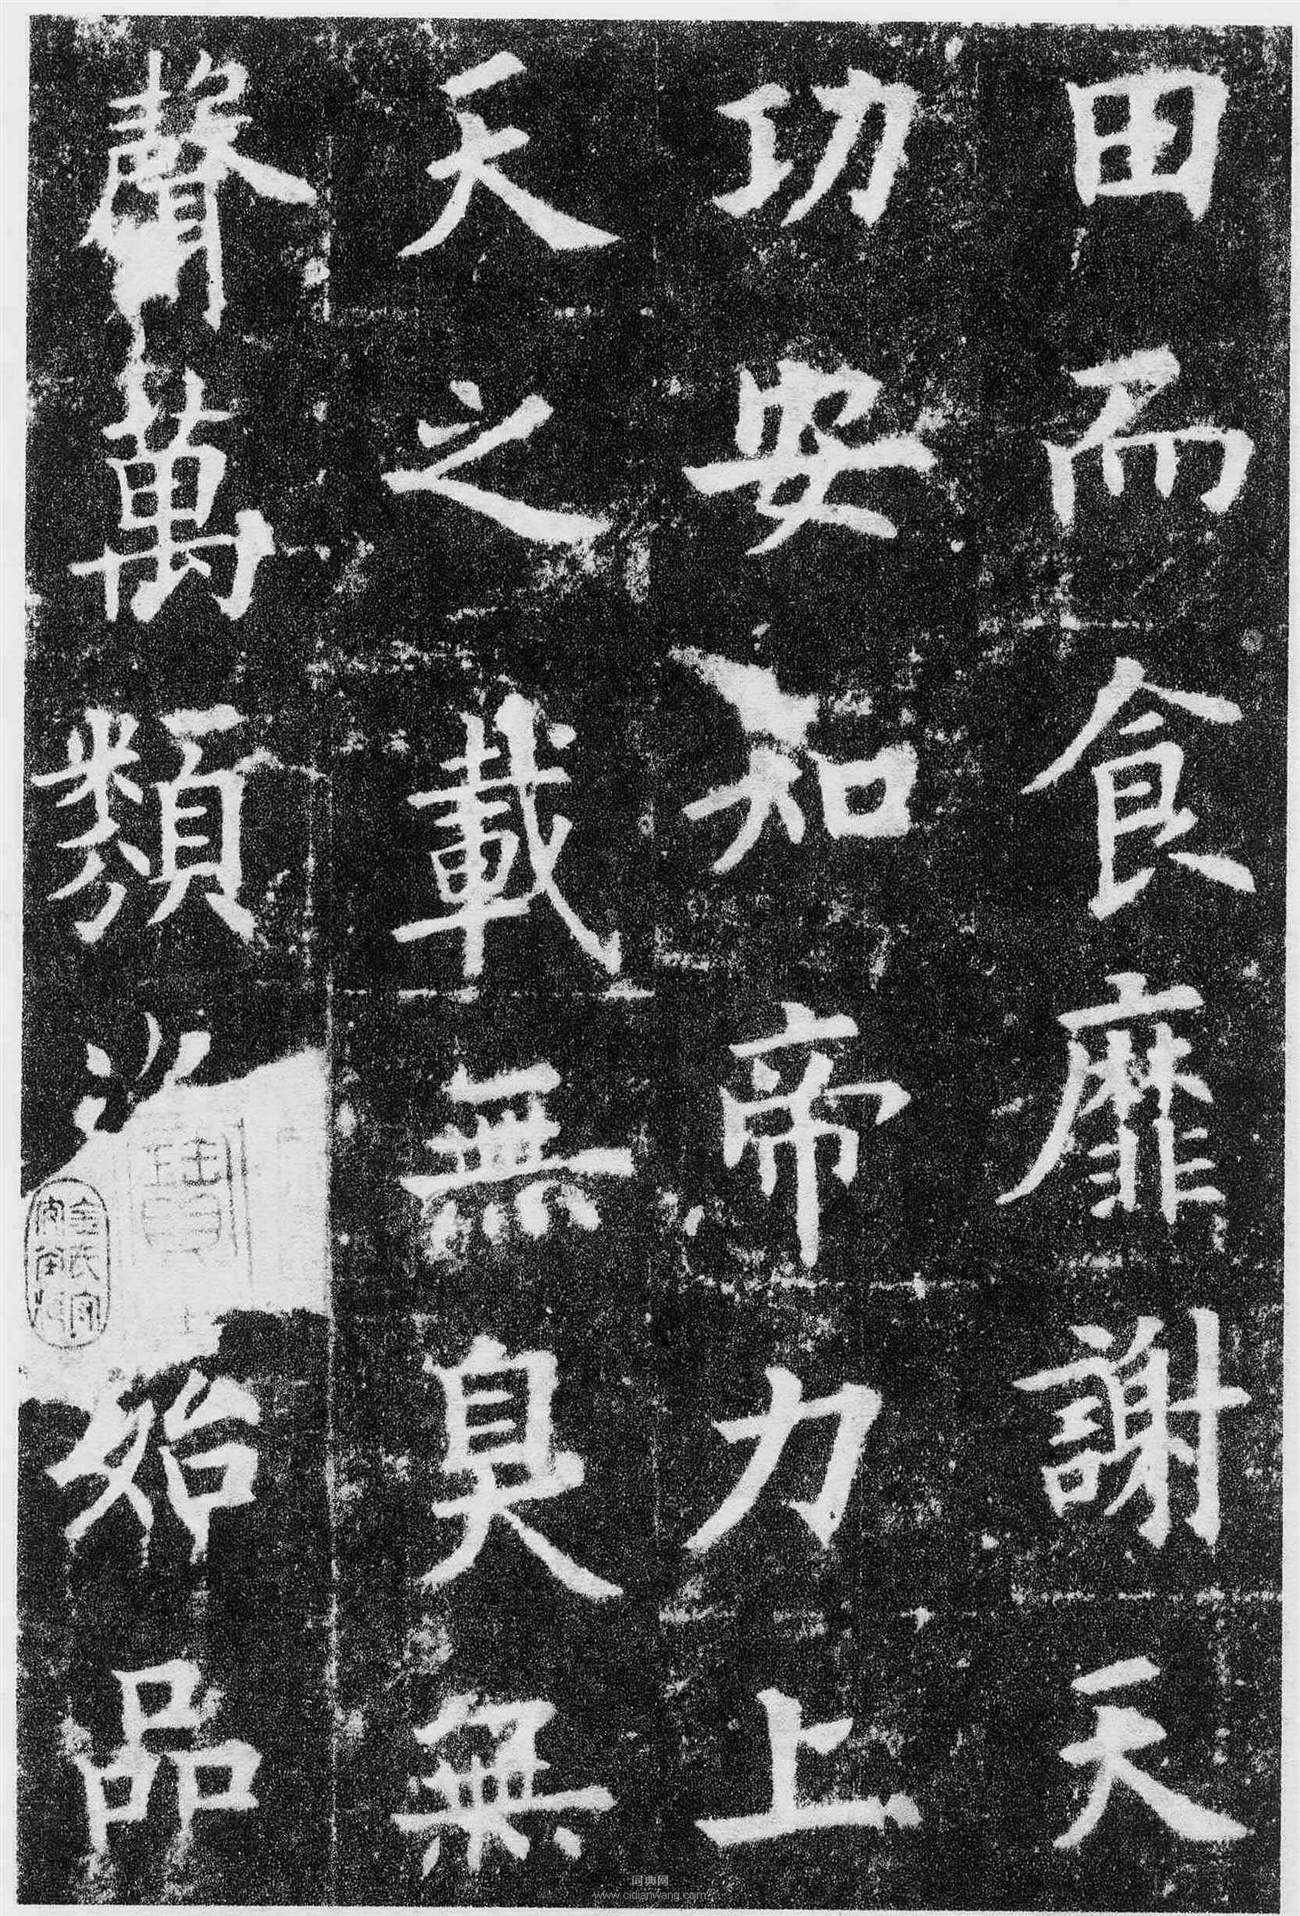 田而食靡謝天
功安知帝力上
天之載無臭無
聲萬類資始品
詞典网
www.cidianwang.com